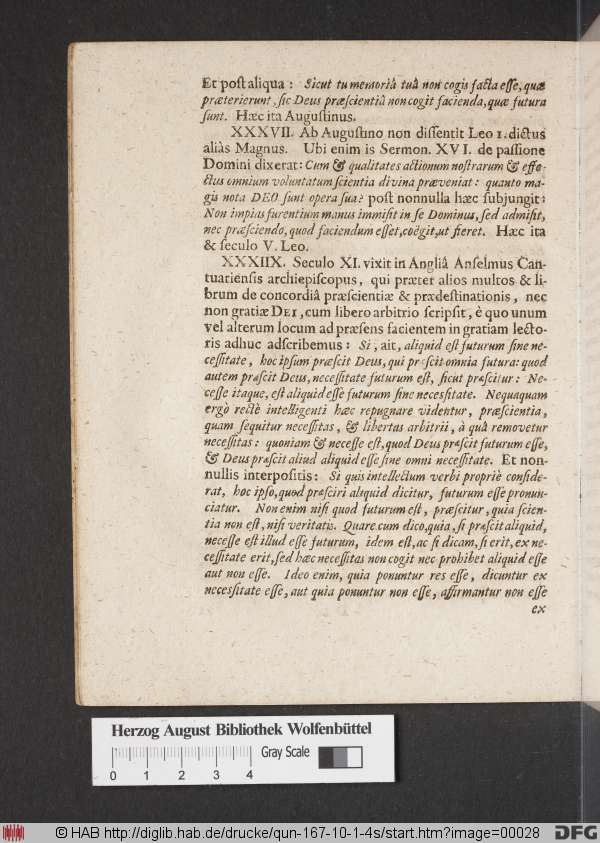 Et post aliqua : Sicut tu memoriâ tuâ non cogis facta esse, quæ
præterierunt, sic Deus præscientiâ non cogit facienda, quæ futura
sunt. Hæc ita Augustinus.
XXXVII. Ab Augustino non dissentit Leo 1. dictus
aliàs Magnus. Ubi enim is Sermon. XVI. de passione
Domini dixerat: Cum & qualitates actionum nostrarum & effe-
ctus omnium voluntatum scientia divina præveniat : quanto ma-
gis nota DEO sunt opera sua? post nonnulla hæc subjungit:
Non impias furentium manus immisit in se Dominus, sed admisit,
nec præsciendo, quod faciendum esset, coëgit, ut fieret. Hæc ita
& seculo V. Leo.
XXXIIX. Seculo XI. vixit in Angliâ Anselmus Can-
tuariensis archiepiscopus, qui præter alios multos & li-
brum de concordiâ præscientiæ & prædestinationis, nec
non gratiæ DEI, cum libero arbitrio scripsit, è quo unum
vel alterum locum ad præsens facientem in gratiam lecto-
ris adhuc adscribemus : Si, ait, aliquid est futurum sine ne-
cessitate, hoc ipsum præscit Deus, qui præscit omnia futura: quod
autem præscit Deus, necessitate futurum est, sicut præscitur : Ne-
cesse itaque, est aliquid esse futurum sine necessitate. Nequaquam
ergò rectè intelligenti hæc repugnare videntur, præscientia,
quam sequitur necessitas, & libertas arbitrii, à quâ removetur
necessitas : quoniam & necesse est, quod Deus præscit futurum esse,
& Deus præscit aliud aliquid esse sine omni necessitate. Et non-
nullis interpositis : Si quis intellectum verbi propriè conside-
rat, hoc ipso, quod præsciri aliquid dicitur, futurum esse pronun-
ciatur. Non enim nisi quod futurum est, præscitur, quia scien-
tia non est, nisi veritatis. Quare cum dico, quia, si præscit aliquid,
necesse est illud esse futurum, idem est, ac si dicam, si erit, ex ne-
cessitate erit, sed hæc necessitas non cogit nec prohibet aliquid esse
aut non esse. Ideo enim, quia ponuntur res esse, dicuntur ex
necessitate esse, aut quia ponuntur non esse, affirmantur non esse
ex
Herzog August Bibliothek Wolfenbüttel
Gray Scale
0 1 2 3 4
© HAB http://diglib.hab.de/drucke/qun-167-10-1-4s/start.htm?image=00028
DFG